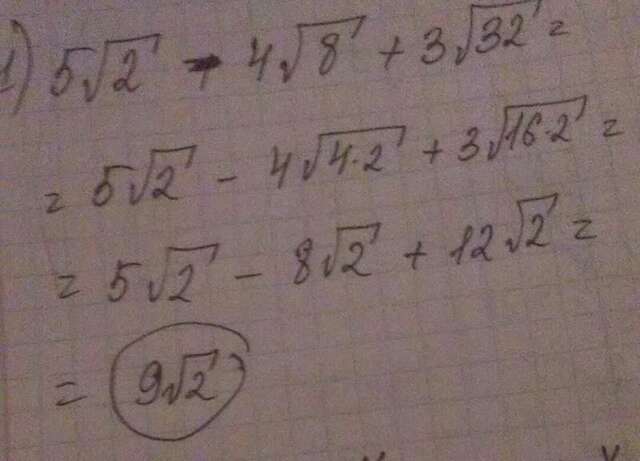 1) 5√2 - 4√8 + 3√32 =
= 5√2 - 4√4·2 + 3√16·2 =
= 5√2 - 8√2 + 12√2 =
= 9√2